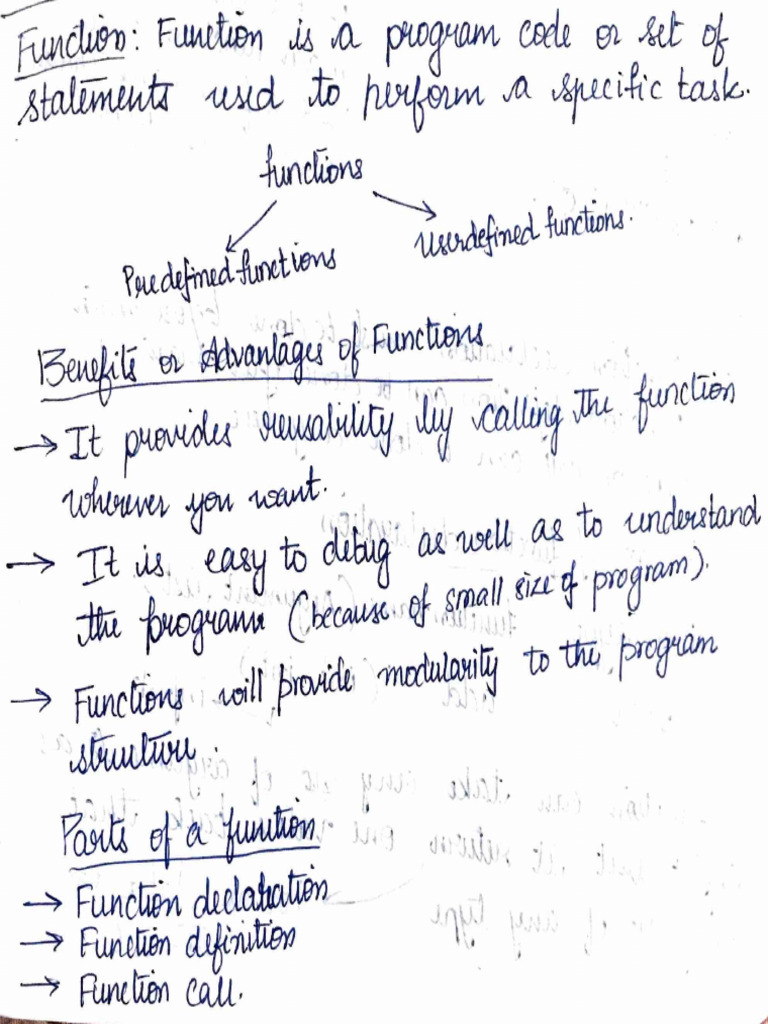 Function: Function is a program code or set of
statements used to perform a specific task.
functions
Predefined functions
Userdefined functions.
Benefits or Advantages of Functions
→ It provides reusability by calling the function
wherever you want.
→ It is easy to debug as well as to understand
the program (because of small size of program).
→ Functions will provide modularity to the program
structure.
Parts of a function
→ Function declaration
→ Function definition
→ Function call.